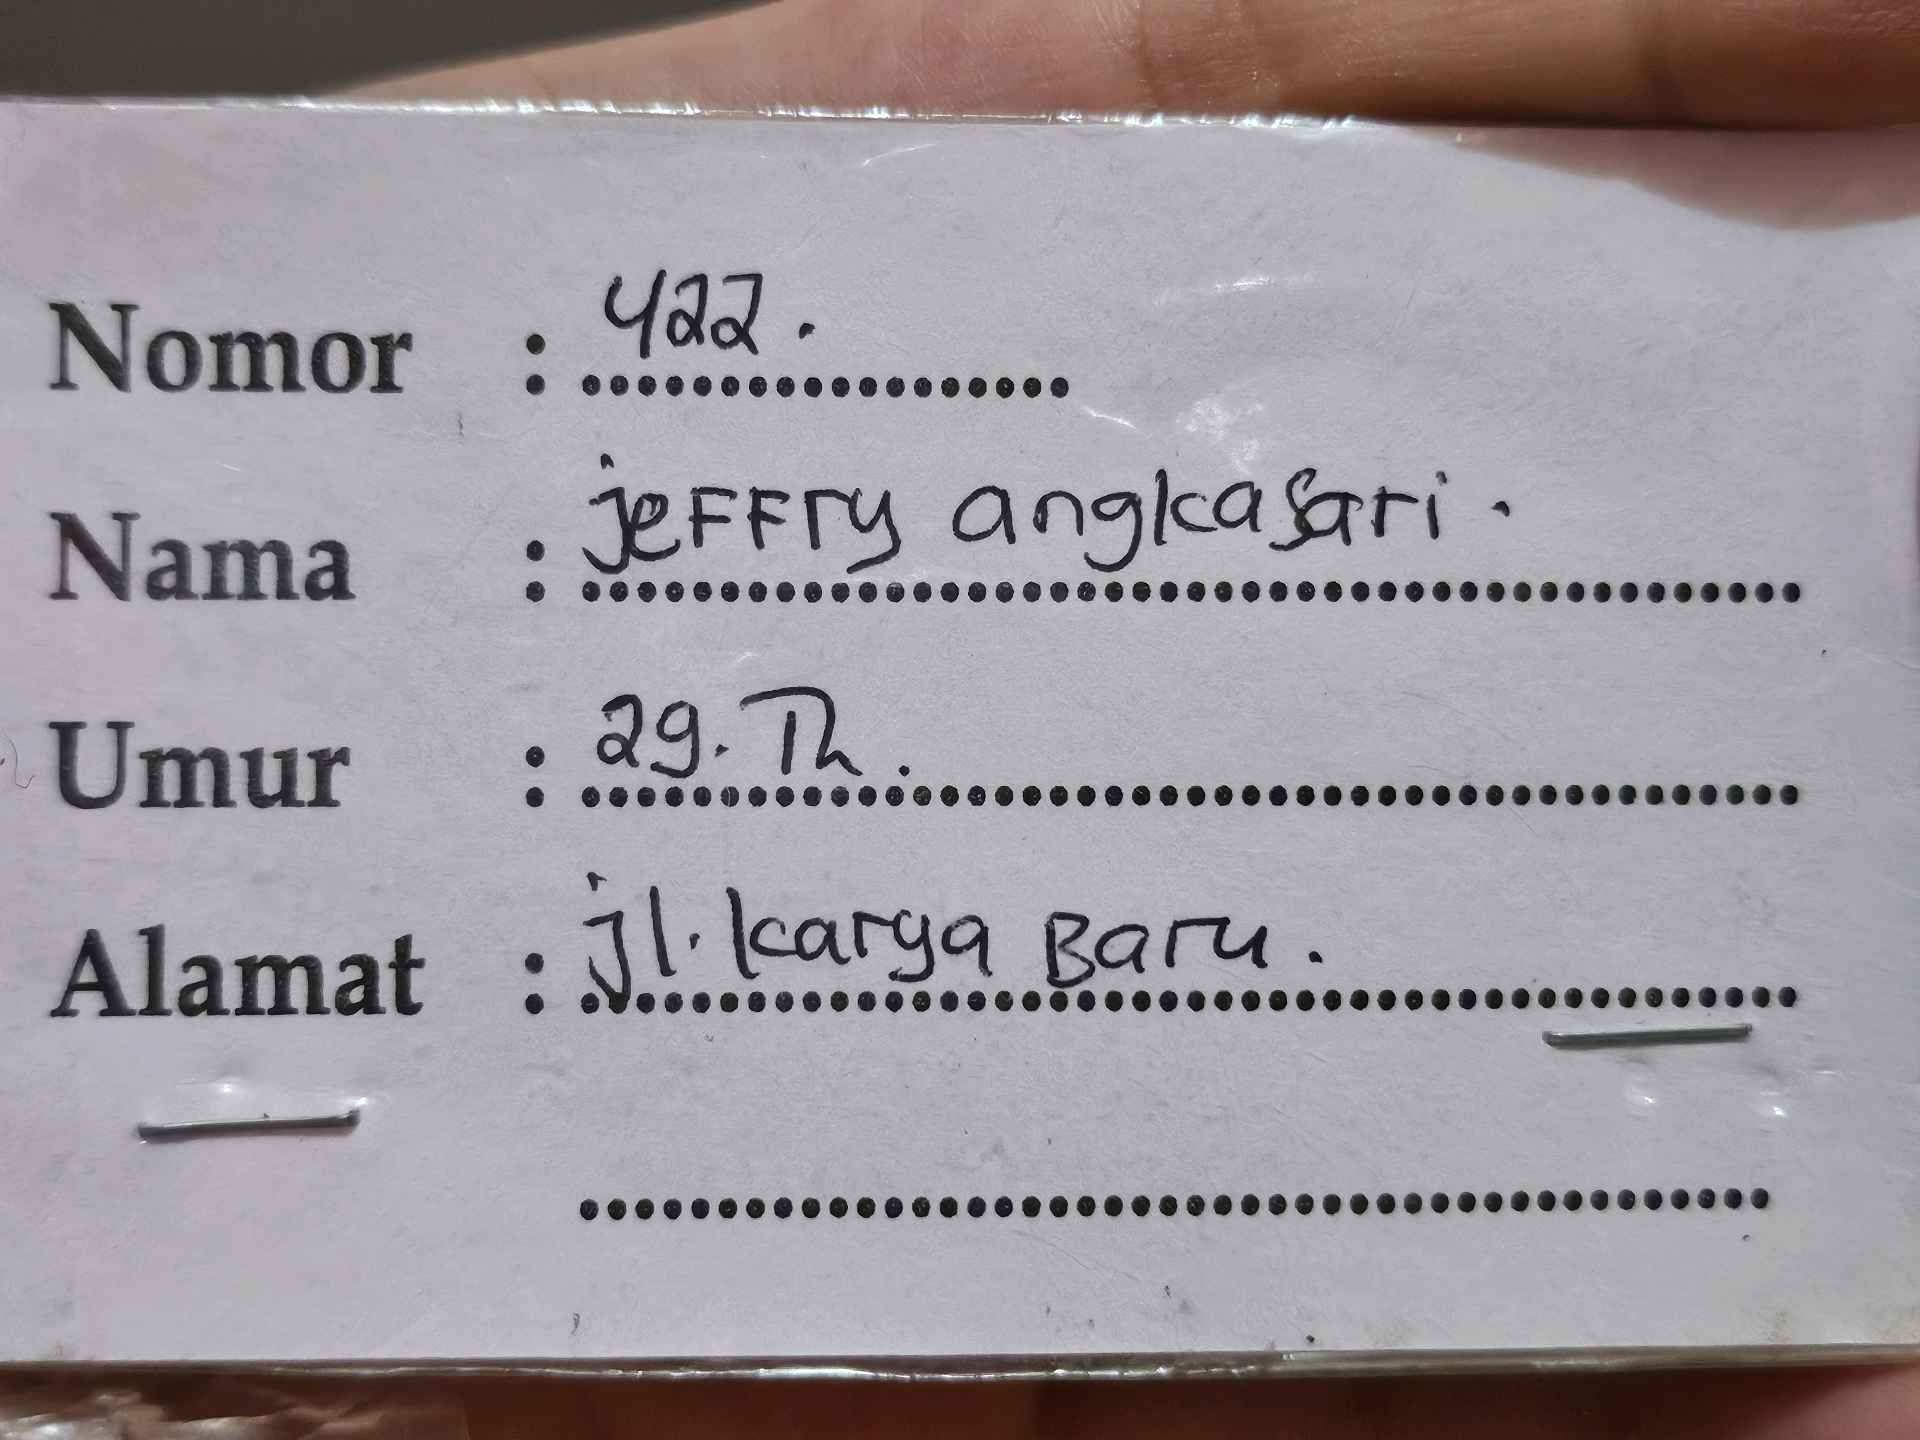 Nomor : 422.
Nama : jeFFry angkasari.
Umur : 29. Th.
Alamat : jl. karya Baru.